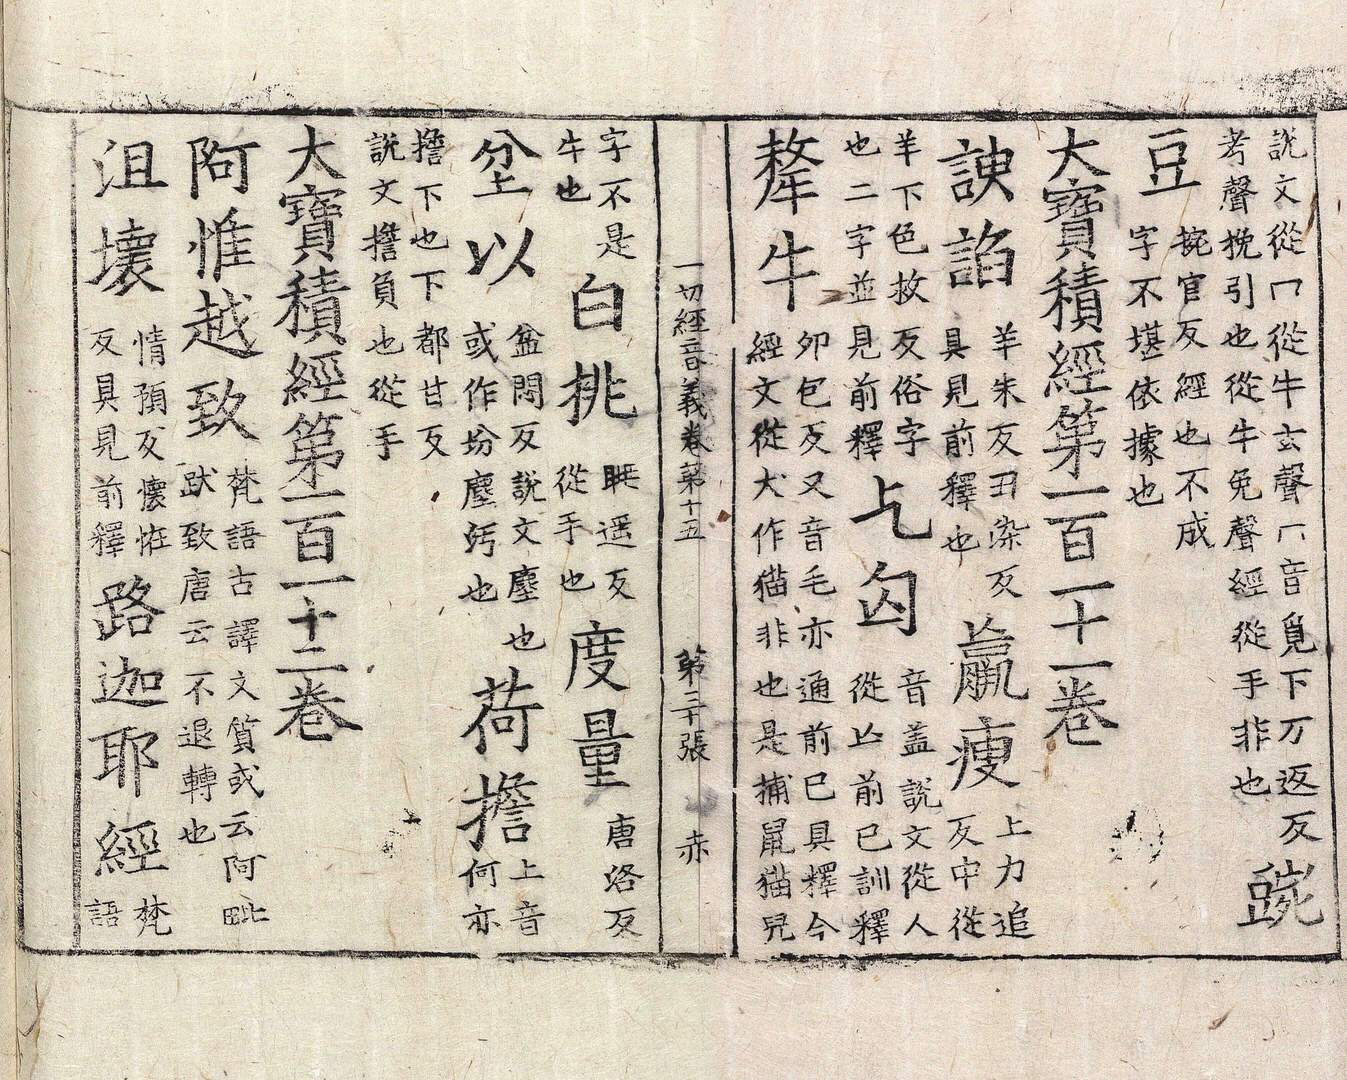 説文從冂從牛玄聲冂音覓下万返反
考聲挽引也從牛免聲經從手非也
豌
豆
捥官反經也不成
字不堪依據也
大寶積經第一百一十一卷
諛諂
羊朱反丑染反
具見前釋也
羸瘦
上力追
反中從
羊下色救反俗字
也二字並見前釋
乞匃
音盖説文從人
從亾前已訓釋
犛牛
夘包反又音毛亦通前巳具釋今
經文從犬作猫非也是捕鼠猫兒
一切經音義卷第十五 第三十張 赤
字不是
牛也
白挑
眺遥反
從手也
度量
唐洛反
坌以
盆悶反説文塵也
或作坋塵汚也
荷擔
上音
何亦
擔下也下都甘反
説文擔負也從手
大寶積經第一百一十二卷
阿惟越致
梵語古譯文質或云阿毗
跋致唐云不退轉也
沮壞
情預反懐恠
反具見前釋
路迦耶經
梵
語